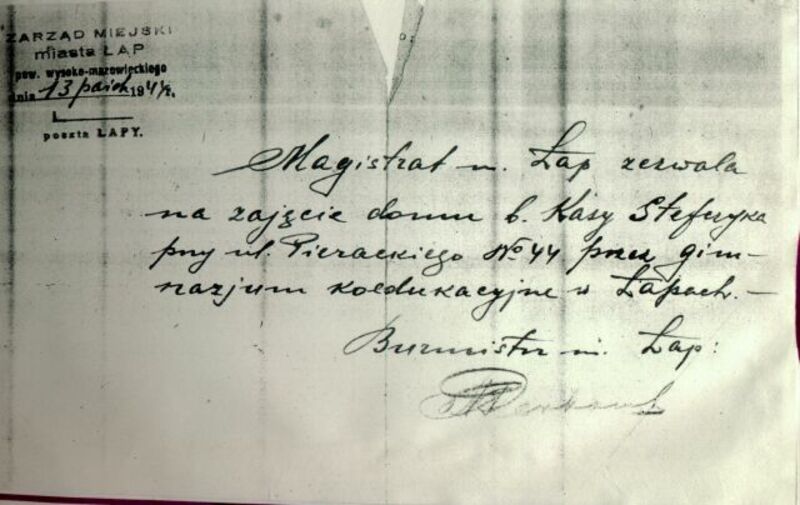 ZARZĄD MIEJSKI
miasta ŁAP
pow. wysoko-mazowieckiego
dnia 13 paźdz 1944r.
poczta ŁAPY.
Magistrat m. Łap zezwala
na zajęcie domu b. Kasy Stefczyka
przy ul. Pierackiego No 44 przez gim-
nazjum koedukacyjne w Łapach.—
Burmistrz m. Łap: